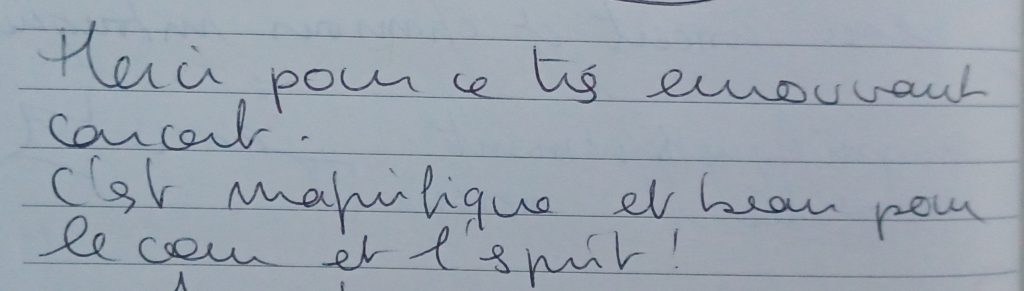 Merci pour ce très émouvant
concert.
C'est magnifique et beau pour
le cœur et l'esprit !